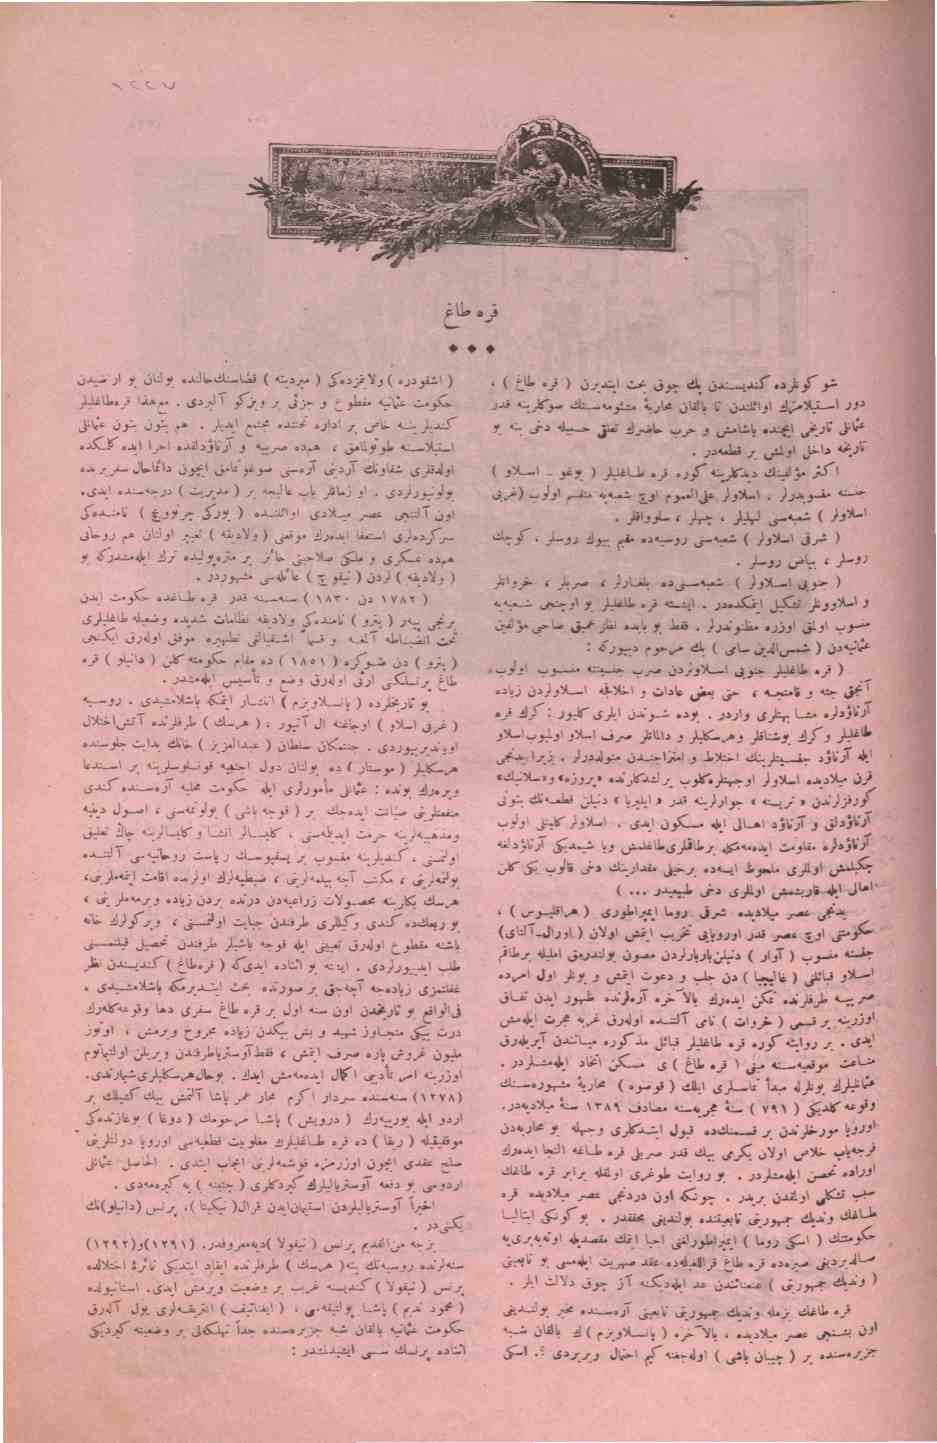 ١٢٢٧
قره طاغ
شو كونلرده كنديسندن پك چوق بحث ايتديرن ( قره طاغ ) ،
دور استيلامزك اوائلندن تا بالقان محاربۀ مشئومه‌سنك صوكلرينه قدر
عثمانلى تاريخى ايچنده ياشامش و حرب حاضرك تعلق حسبيله دخى ينه بو
تاريخه داخل اولمش بر قطعه‌در .
اكثر مؤلفينك ديدكلرينه كوره قره طاغليلر ( يوغو ـ اسلاو )
جنسنه منسوبدرلر . اسلاولر على العموم اوچ شعبه‌يه منقسم اولوب (غربى
اسلاولر ) شعبه‌سى لهليلر ، چهلر ، سلوواقلر .
( شرقى اسلاولر ) شعبه‌سى روسيه‌ده مقيم بيوك روسلر . كوچك
روسلر ، بياض روسلر .
( جنوبى اسلاولر ) شعبه‌سى‌ده بلغارلر ، صربلر ، خرواتلر
و اسلاوونلر تشكيل ايتمكده‌در . ايشته قره طاغليلر بو اوچنجى شعبه‌يه
منسوب اولمق اوزره مظنوندرلر . فقط بو بابده نظر عميق صاحبى مؤلفين
عثمانيه‌دن ( شمس‌الدين سامى ) بك مرحوم دييوركه :
( قره طاغليلر جنوبى اسلاولردن صرب جنسيتنه منسوب اولوب
آنجق جثه و قامتجه ، حتى بعض عادات و اخلاقجه اسلاولردن زياده
آرناؤدلره مشابهتلرى واردر . بوده شوندن ايلرى كليور : كرك قره
طاغليلر و كرك بوشناقلر وهرسكليلر و دالماتلر صرف اسلاو اوليوب اسلاو
ايله آرناؤد جنسيتلرينك اختلاط و امتزاجندن متولددرلر . زيرا يدنجى
قرن ميلاديده اسلاولر اوجهتلره كلوب يرلشدكلرنده «پروزه» و«سلانيك»
كورفزلرندن « تريسته » جوارلرينه قدر « ايليريا » دنيلن قطعه‌نك بتونى
آرناؤدلق و آرناؤد اهالى ايله مسكون ايدى . اسلاولر كليتلى اولوب
آرناؤدلره مقاومت ايده‌مه‌مكله برطاقلرى طاغلمش ويا شيمديكى آرناؤدلغه
چكيلمش اوللرى ملحوظ ايسه‌ده برخيلى مقدارينك دخى قالوب يكى كلن
اهالى ايله قاريشمش اوللرى دخى طبيعيدر ... )
يدنجى عصر ميلاديده شرقى روما ايمپراطورى ( هراقليوس ) ،
حكومتنى اوچ عصر قدر اوروپايى تخريب ايتمش اولان ( اورال‌ـ‌آلتاى)
جنسنه منسوب ( آوار ) دنيلن‌باربارلردن مصون بولندرمق امليله برطاقم
اسلاو قبائلنى ( غاليچيا ) دن جلب و دعوت ايتمش و بونلر اول امرده
صربيه طرفلرنده تمكن ايده‌رك بالآخره آره‌لرنده ظهور ايدن نفاق
اوزرينه بر قسمى ( خروات ) نامى آلتنده اوله‌رق غربه هجرت ايله‌مش
ايدى . بر روايته كوره قره طاغليلر قبائل مذكوره مياننده آيريله‌رق
مناعت موقعيه‌سنه مبنى ( قره طاغ ) ى مسكن اتخاذ ايله‌مشلردر .
عثمانليلرك بونلرله مبدأ تماسلرى ايلك ( قوصوه ) محاربۀ مشهوره‌سنك
وقوعه كلديكى ( ٧٩١ ) سنۀ هجريه‌سنه مصادف ١٣٨٩ سنۀ ميلاديه‌در.
اوروپا مورخلرندن بر قسمنك‌ده قبول ايتدكلرى وجهله بو محاربه‌دن
فرجه‌ياب خلاص اولان يكرمى بيك قدر صربلى قره طاغه التجا ايده‌رك
اوراده تحصن ايله‌مشلردر . بو روايت طوغرى اولمغله برابر قره طاغك
سبب تشكلى اولمقدن بريدر . چونكه اون دردنجى عصر ميلاديده قره
طاغك ونديك جمهوريتى تابعيتنده بولنديغى محققدر . بو كونكى ايتاليا
حكومتنك ( اسكى روما ) ايمپراطورلغنى احيا ايتمك مقصديله اوته‌يه‌برى‌يه
صالديرديغى صره‌ده قره طاغ قراللغيله‌ده عقد صهريت ايله‌مسى بو تابعيتى
( ونديك جمهوريتى ) عنعناتندن عد ايله‌ديكنه آز چوق دلالت ايلر .
قره طاغك بزمله ونديك جمهوريتى تابعيتى آره‌سنده مخير بولنديغى
اون بشنجى عصر ميلاديده ، بالآخره ( پانسلاويزم ) ك بالقان شبه
جزيره‌سنده بر ( چيبان باشى ) اوله‌جغنه كيم احتمال ويريردى ؟. اسكى
( اشقودره ) ولايتمزده‌كى ( ميرديته ) قضاسنك‌حالنده بولنان بو اراضيدن
حكومت عثمانيه مقطوع و جزئى بر ويركو آليردى . مع‌هذا قره‌طاغليلر
كنديلرينه خاص بر اداره تحتنده مجتمع ايديلر . هم بتون بتون عثمانلى
استيلاسنه طوتولمامق ، همده صربيه و آرناؤدلقده اجرا ايده كلمكده
اولدقلرى شقاوتك آردينى آره‌سى صوغوتمامق ايچون دائما‌حال سفربريده
بولونيورلردى . او زمانلر باب عاليجه بر ( مديريت ) درجه‌سنده ايدى.
اون آلتنجى عصر ميلادى اوائلنده ( يوركى چرنوويچ ) نامنده‌كى
سركرده‌لرى استعفا ايده‌رك موقعنى ( ولاديقه ) تعبير اولنان هم روحانى
همده عسكرى و ملكى صلاحيتى حائز بر متره‌پوليده ترك ايله‌مشدركه بو
( ولاديقه ) لردن ( نيقو چ ) عائله‌سى مشهوردر .
( ١٧٨٢ دن ١٨٣٠ ) سنه‌سنه قدر قره طاغده حكومت ايدن
برنجى پيه‌ر ( پترو ) نامنده‌كى ولاديقه نظامات شديده وضعيله طاغليلرى
تحت انضباطه آلمغه و قسماً اشقيالقى تطهيره موفق اوله‌رق ايكنجى
( پترو ) دن صوكره ( ١٨٥١ ) ده مقام حكومته كلن ( دانيلو ) قره
طاغ پرنسلكنى ارثى اوله‌رق وضع و تأسيس ايله‌مشدر .
بو تاريخلرده ( پانسلاويزم ) انتشار ايتمكه باشلامشيدى . روسيه
( غربى اسلاو ) اوجاغنه ال آتيور ، ( هرسك ) طرفلرنده آتش‌اختلال
اوياندیريیوردى . جنتمكان سلطان ( عبدالعزيز ) خانك بدايت جلوسنده
هرسكليلر ( موستار ) ده بولنان دول اجنبيه قونسلوسلرينه بر استدعا
ويره‌رك بونده : عثمانلى مأمورلرى ايله حكومت محليه آره‌سنده كندى
منفعتلرينى صيانت ايده‌جك بر ( قوجه باشى ) بولونمه‌سنى ، اصول دينيه
ومذهبيه‌لرينه حرمت ايديلمه‌سنى ، كليسالر انشا و كليسالرينه چاڭ تعليق
اولنمسنى . كنديلرينه منسوب بر پسقپوسك رياست روحانيه‌سى آلتنده
بولنمه‌لرينى ، مكتب آچه بيلمه‌لرينى ، ضبطيه‌لرك اولرنده اقامت ايتمه‌ملرينى،
هرسك بكلرينه محصولات زراعيه‌دن درتده بردن زياده ويرمه‌ملرينى ،
بو ربعك‌ده كندى وكيللرى طرفندن جبايت اولنمسنى ، ويركولرك خانه
باشنه مقطوع اوله‌رق تعيينى ايله قوجه باشيلر طرفندن تحصيل قيلنمسنى
طلب ايدييورلردى . ايشته بو اثناده ايدى‌كه ( قره‌طاغ ) كنديسندن نظر
غفلتمزى زياده‌جه آچه‌جق بر صورتده بحث ايتديرمكه باشلامشيدى .
فى‌الواقع بو تاريخمدن اون سنه اول بر قره طاغ سفرى دها وقوعه‌كله‌رك
درت بيكى متجاوز شهيد و بش بيكدن زياده مجروح ويرمش ، اوتوز
مليون غروش پاره صرف ايتمش ، فقط‌آوستريا‌طرفندن ويريلن اولتيماتوم
اوزرينه امر تأديبى اكمال ايده‌مه‌مش ايدك . بوحال‌هرسكليلرى شيمارتدى.
(١٢٧٨) سنه‌سنده سردار اكرم مجار عمر پاشا آلتمش بيك كشيلك بر
اردو ايله يوريیه‌رك ( درويش ) پاشا مرحومك ( دوغا ) بوغازنده‌كى
موفقيتيله ( ريقا ) ده قره طاغليلرك مغلوبيت قطعيه‌سى اوروپا دولتلرينى
صلح عقدى ايچون اوزرمزه قوشمه‌لرينى ايجاب ايتدى . الحاصل عثمانلى
اردوسى بو دفعه آوستريا‌ليلرك كيردكلرى ( چتينه ) يه كيره‌مه‌دى .
اخيراً آوستريا‌ليلردن استيمان‌ايدن قرال( نيكيتا )، پرنس (دانيلو)نك
يكنى‌در .
بزجه من‌القديم پرنس ( نيقولا )ديه‌معروفدر. (١٢٩١)و(١٢٩٢)
سنه‌لرنده روسيه‌نك ينه( هرسك ) طرفلرنده ايقاد ايتديكى نائرۀ اختلالده
پرنس ( نيقولا ) كنديسنه غريب بر وضعيت ويرمش ايدى. استانبولده
( محمود نديم ) پاشا پولتيقه‌سى ، ( ايغناتيف ) انتريقه‌لرى يول آله‌رق
حكومت عثمانيه بالقان شبه جزيره‌سنده جداً تهلكه‌لى بر وضعيته كيرديكى
اثناده پرنسك سسى ايشيدلمشدر :